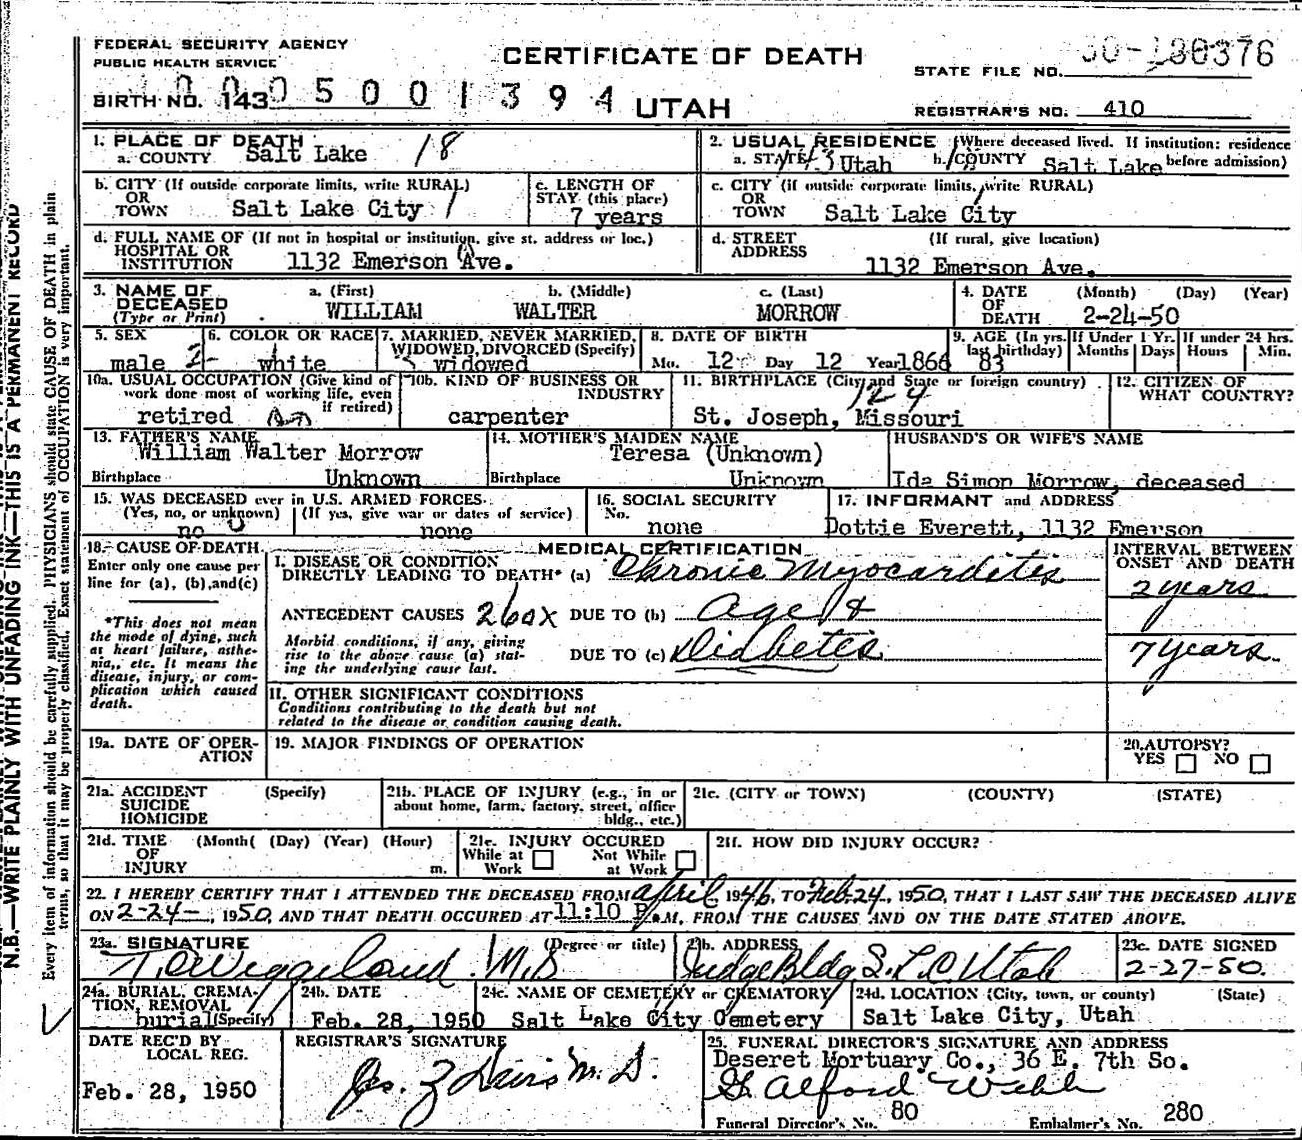 FEDERAL SECURITY AGENCY
PUBLIC HEALTH SERVICE
CERTIFICATE OF DEATH
STATE FILE NO.
BIRTH NO. 143 0 5 0 0 1 3 9 4
UTAH
REGISTRAR'S NO. 410
1. PLACE OF DEATH
a. COUNTY Salt Lake 18
2. USUAL RESIDENCE (Where deceased lived. If institution: residence before admission)
a. STATE Utah b. COUNTY Salt Lake
b. CITY (If outside corporate limits, write RURAL)
OR
TOWN Salt Lake City 1
c. LENGTH OF
STAY (this place)
7 years
c. CITY (if outside corporate limits, write RURAL)
OR
TOWN Salt Lake City
d. FULL NAME OF (If not in hospital or institution, give st. address or loc.)
HOSPITAL OR
INSTITUTION 1132 Emerson Ave.
d. STREET (If rural, give location)
ADDRESS
1132 Emerson Ave.
3. NAME OF
DECEASED
(Type or Print)
a. (First) b. (Middle) c. (Last)
WILLIAM WALTER MORROW
4. DATE (Month) (Day) (Year)
OF
DEATH 2-24-50
5. SEX
male 2-
6. COLOR OR RACE
white
7. MARRIED, NEVER MARRIED,
WIDOWED, DIVORCED (Specify)
widowed
8. DATE OF BIRTH
Mo. 12 Day 12 Year 1866
9. AGE (In yrs.
last birthday)
83
If Under 1 Yr.
Months Days
If under 24 hrs.
Hours Min.
10a. USUAL OCCUPATION (Give kind of
work done most of working life, even
if retired)
retired
10b. KIND OF BUSINESS OR
INDUSTRY
carpenter
11. BIRTHPLACE (City and State or foreign country)
124
St. Joseph, Missouri
12. CITIZEN OF
WHAT COUNTRY?
13. FATHER'S NAME
William Walter Morrow
Birthplace Unknown
14. MOTHER'S MAIDEN NAME
Teresa (Unknown)
Birthplace Unknown
HUSBAND'S OR WIFE'S NAME
Ida Simon Morrow, deceased
15. WAS DECEASED ever in U.S. ARMED FORCES
(Yes, no, or unknown) (If yes, give war or dates of service)
no 0 none
16. SOCIAL SECURITY
No. none
17. INFORMANT and ADDRESS
Dottie Everett, 1132 Emerson
18. CAUSE OF DEATH.
Enter only one cause per
line for (a), (b), and(c)
*This does not mean
the mode of dying, such
as heart failure, asthe-
nia,, etc. It means the
disease, injury, or com-
plication which caused
death.
MEDICAL CERTIFICATION
I. DISEASE OR CONDITION
DIRECTLY LEADING TO DEATH* (a) Chronic Myocarditis
ANTECEDENT CAUSES 260X DUE TO (b) Age &
Morbid conditions, if any, giving
rise to the above cause (a) stat-
ing the underlying cause last.
DUE TO (c) Diabetes
INTERVAL BETWEEN
ONSET AND DEATH
2 years
7 years
II. OTHER SIGNIFICANT CONDITIONS
Conditions contributing to the death but not
related to the disease or condition causing death.
19a. DATE OF OPER-
ATION
19. MAJOR FINDINGS OF OPERATION
20. AUTOPSY?
YES NO
21a. ACCIDENT (Specify)
SUICIDE
HOMICIDE
21b. PLACE OF INJURY (e.g., in or
about home, farm, factory, street, office
bldg., etc.)
21c. (CITY or TOWN) (COUNTY) (STATE)
21d. TIME (Month( (Day) (Year) (Hour)
OF
INJURY m.
21e. INJURY OCCURED
While at Work Not While at Work
21f. HOW DID INJURY OCCUR?
22. I HEREBY CERTIFY THAT I ATTENDED THE DECEASED FROM April 1946, TO Feb. 24, 1950, THAT I LAST SAW THE DECEASED ALIVE
ON 2-24-, 1950, AND THAT DEATH OCCURED AT 11:10 P.M, FROM THE CAUSES AND ON THE DATE STATED ABOVE.
23a. SIGNATURE (Degree or title)
M.D
23b. ADDRESS
Judge Bldg S.L.C Utah
23c. DATE SIGNED
2-27-50.
24a. BURIAL, CREMA-
TION, REMOVAL
burial (Specify)
24b. DATE
Feb. 28, 1950
24c. NAME OF CEMETERY or CREMATORY
Salt Lake City Cemetery
24d. LOCATION (City, town, or county) (State)
Salt Lake City, Utah
DATE REC'D BY
LOCAL REG.
Feb. 28, 1950
REGISTRAR'S SIGNATURE
M.D.
25. FUNERAL DIRECTOR'S SIGNATURE AND ADDRESS
Deseret Mortuary Co., 36 E. 7th So.
Alford Webb
Funeral Director's No. 80 Embalmer's No. 280
N.B.—WRITE PLAINLY WITH UNFADING INK—THIS IS A PERMANENT RECORD
Every item of information should be carefully supplied. PHYSICIANS should state CAUSE OF DEATH in plain
terms, so that it may be properly classified. Exact statement of OCCUPATION is very important.